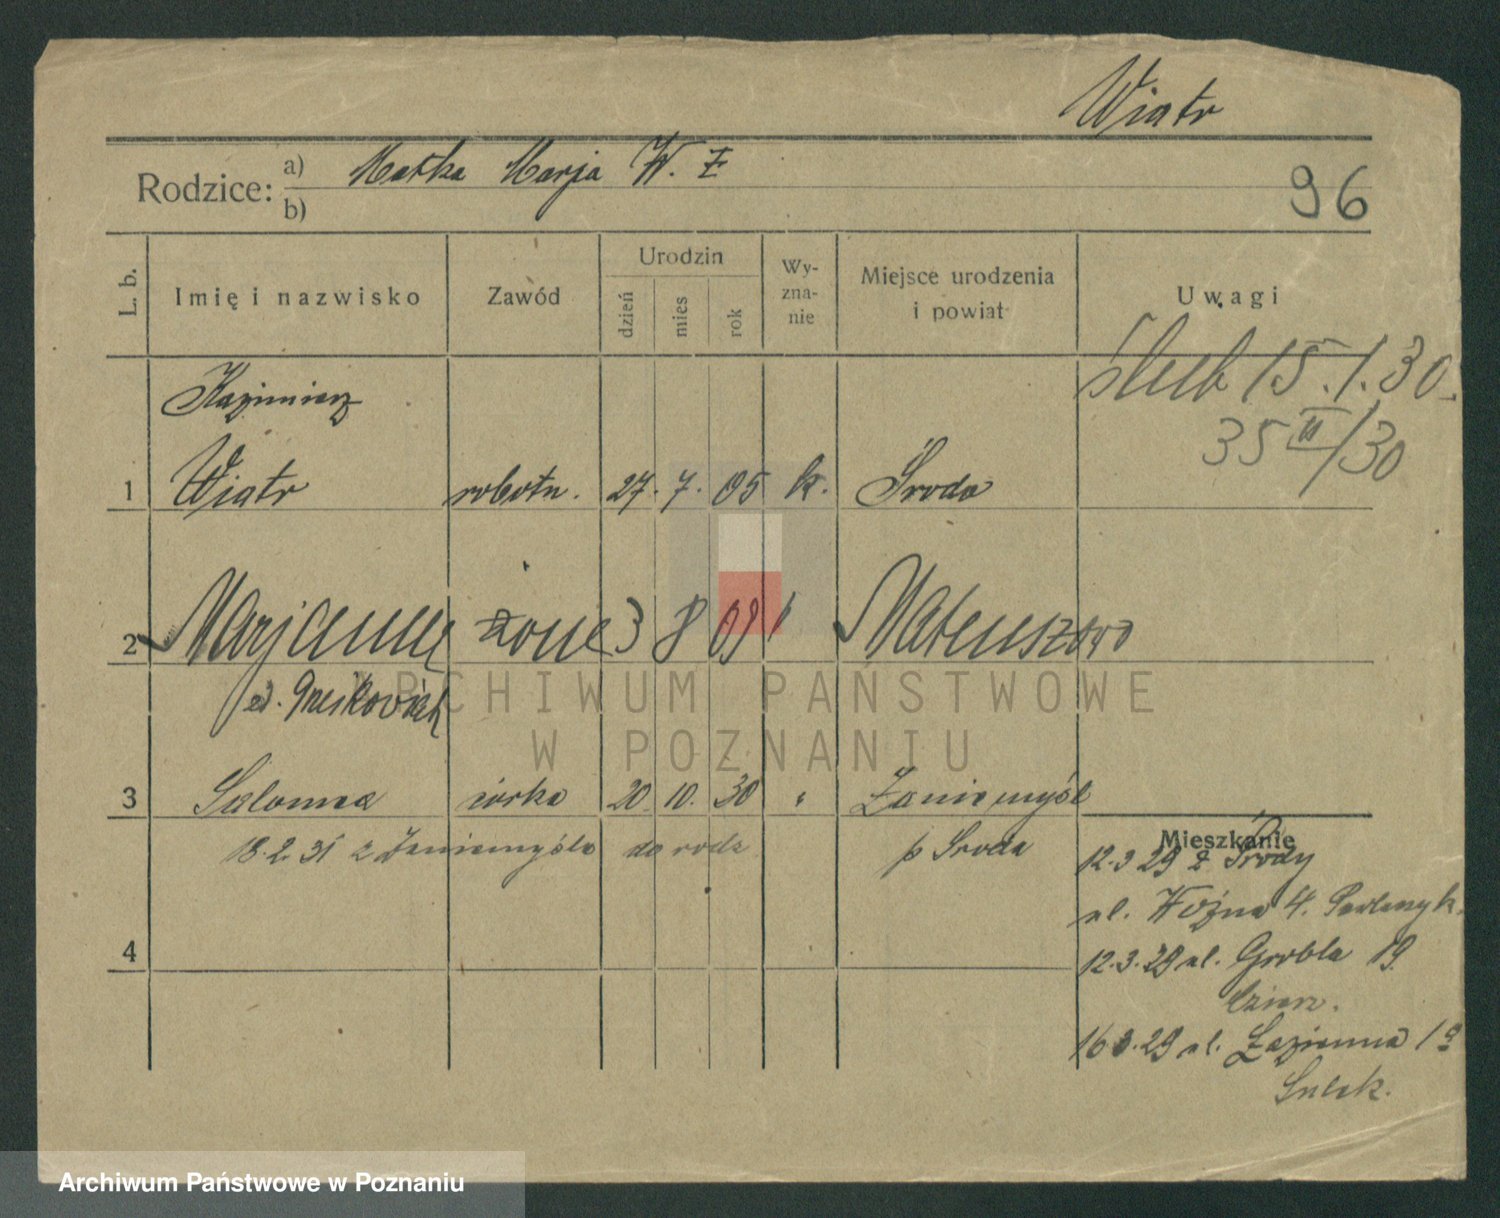 Wiatr
Rodzice: a) Matka Marja W. Ż
b)
96
L. b.
Imię i nazwisko
Zawód
Urodzin
dzień
mies
rok
Wyznanie
Miejsce urodzenia i powiat
Uwagi
ślub 15.1.30.
35 III/30
Kazimierz
1 Wiatr robotn. 27. 7. 05 k. Środa
2 Marjanna żona 3 8 09 Mateuszewo
3 Salomea córka 20 10. 30 " Zaniemyśl
18.2.31 z Zaniemyśla do rodz p Środa
Mieszkanie
12.3 29 z Środy
ul. Woźna 4.
4
12.3.29 ul. Grobla 19.
16 3.29 ul. Łazienna 1a
ARCHIWUM PAŃSTWOWE
W POZNANIU
Archiwum Państwowe w Poznaniu